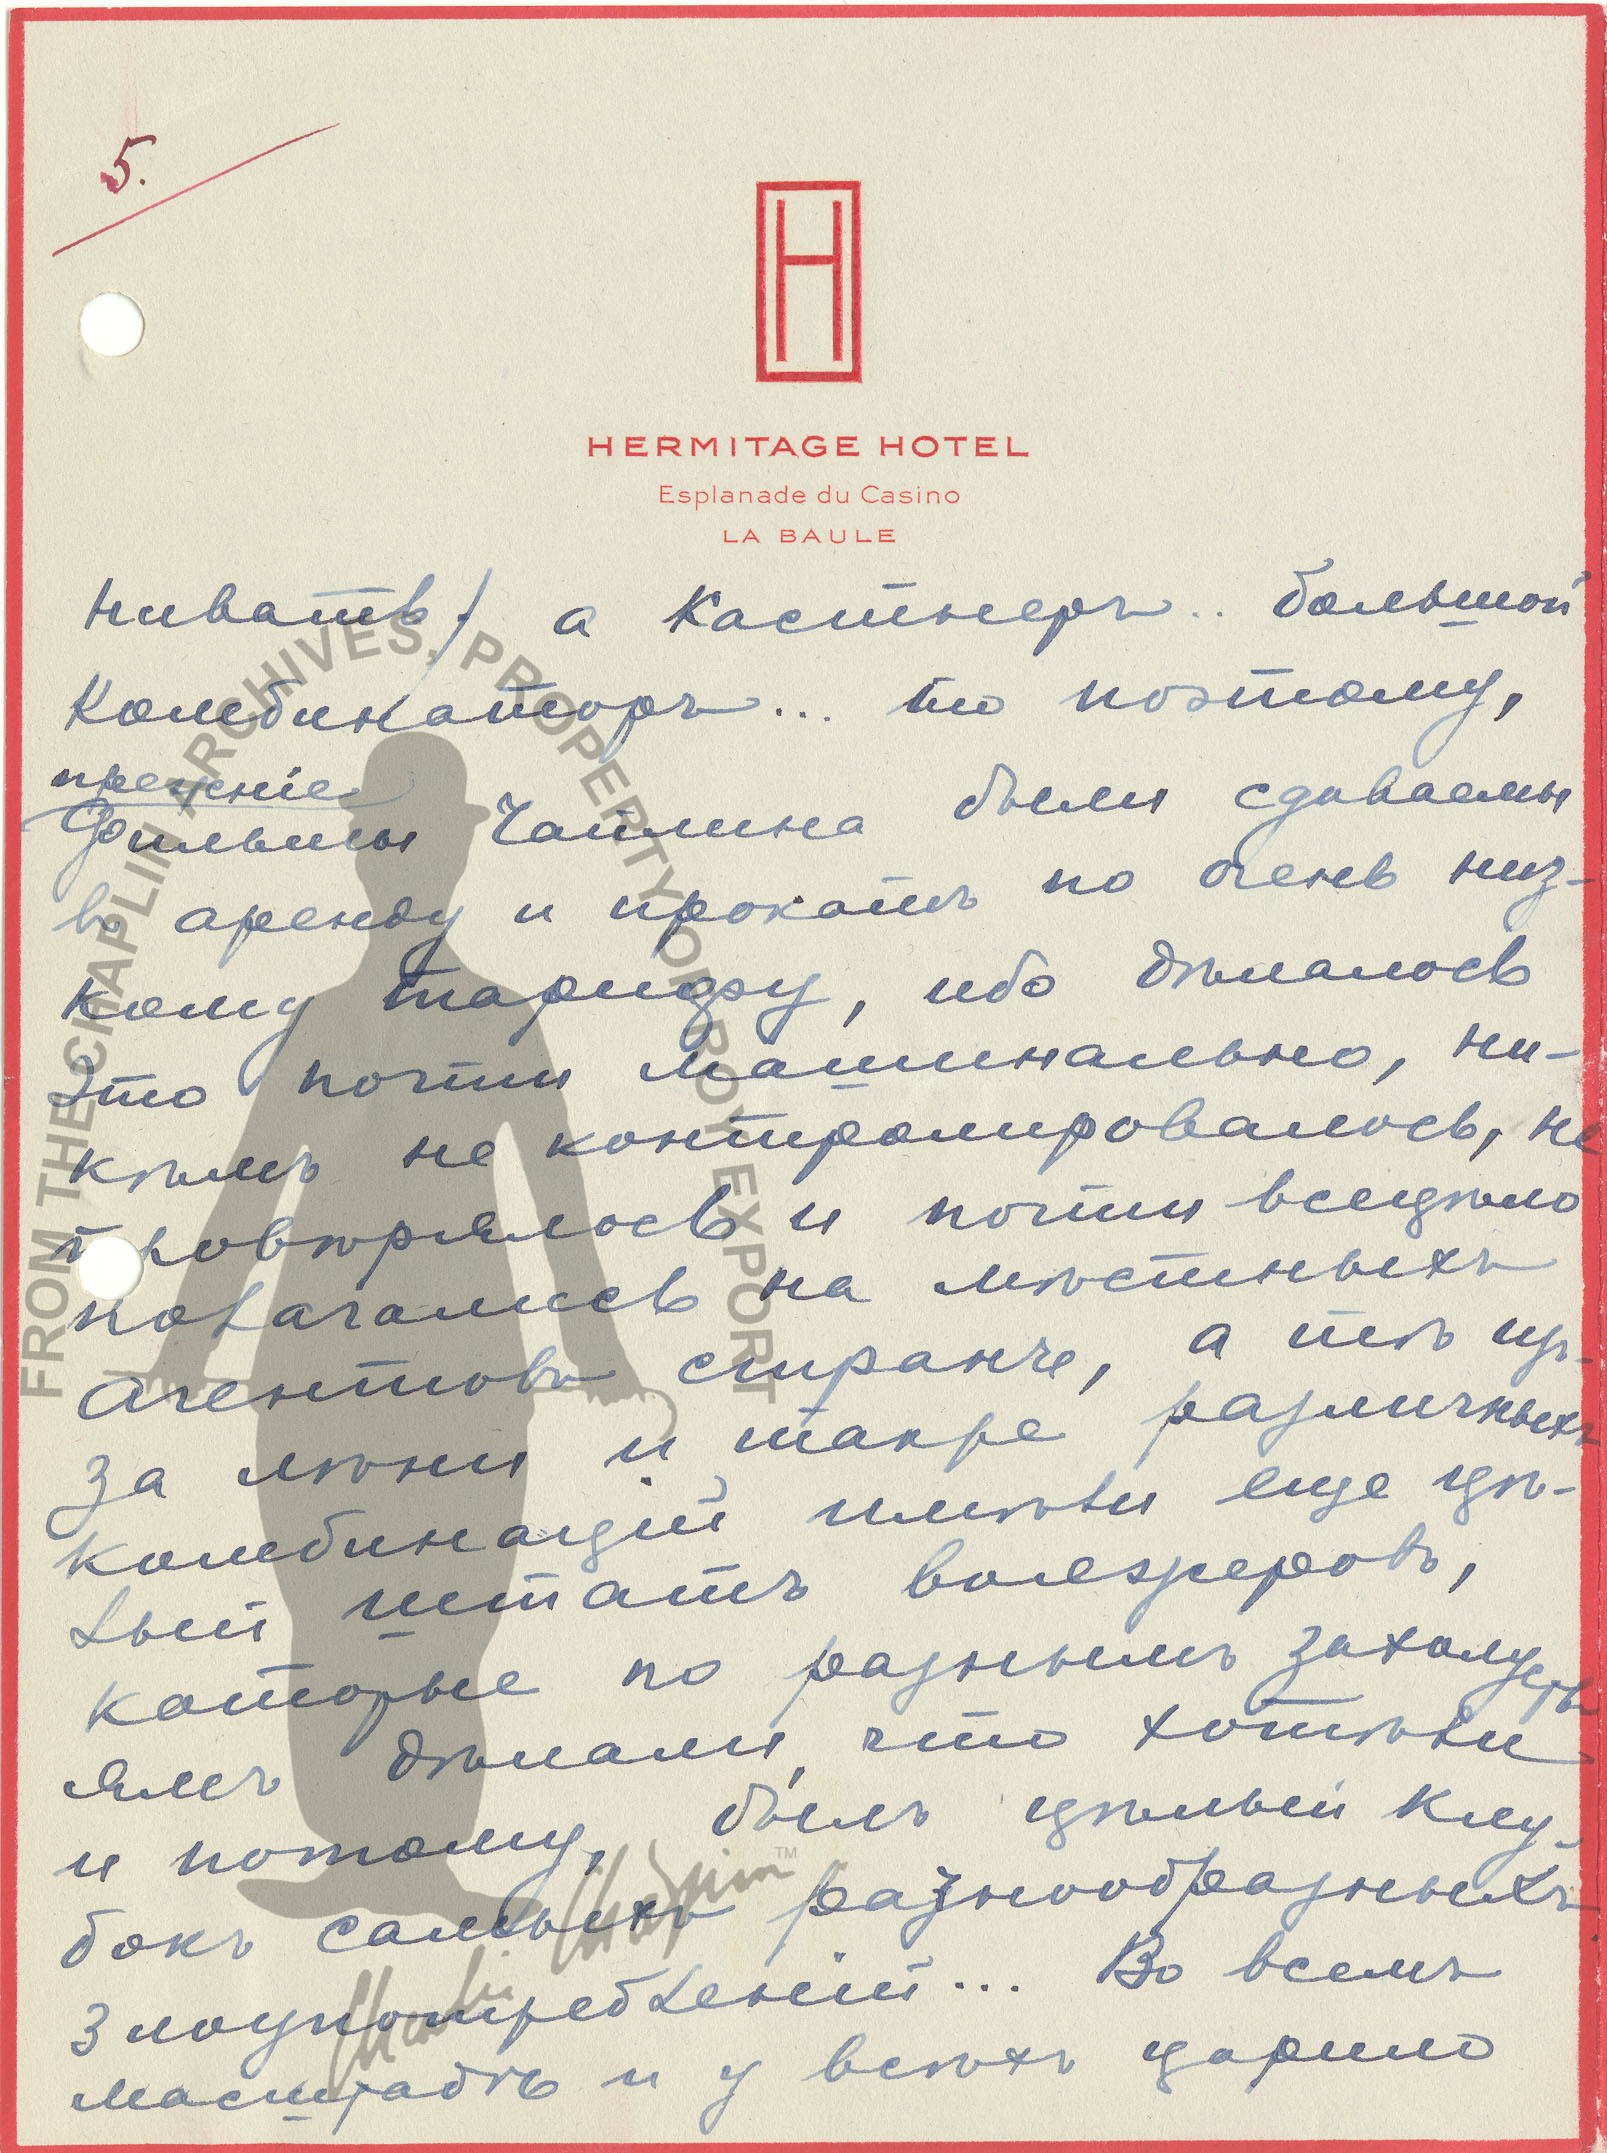 5.
H
HERMITAGE HOTEL
Esplanade du Casino
LA BAULE
нивать/ а Кастнеръ.. большой
комбинаторъ... то поэтому,
прежніе
фильмы Чаплина были сдаваемы
въ аренду и прокатъ по очень низ-
кому тарифу, ибо дѣлалось
это почти машинально, ни-
кѣмъ не контролировалось, не
провѣрялось и почти всецѣло
полагались на мѣстныхъ
агентовъ странъ, а тѣ из-
за лѣни и также различныхъ
комбинацій имѣли еще цѣ-
лый штатъ вояжеровъ,
которые по разнымъ захолусть
ямъ дѣлали, что хотѣли
и потому, былъ цѣлый клу-
бокъ самыхъ разнообразныхъ
злоупотребленій... Во всемъ
масштабѣ и у всѣхъ царило
FROM THE CHAPLIN ARCHIVES, PROPERTY OF ROY EXPORT
Charlie Chaplin™